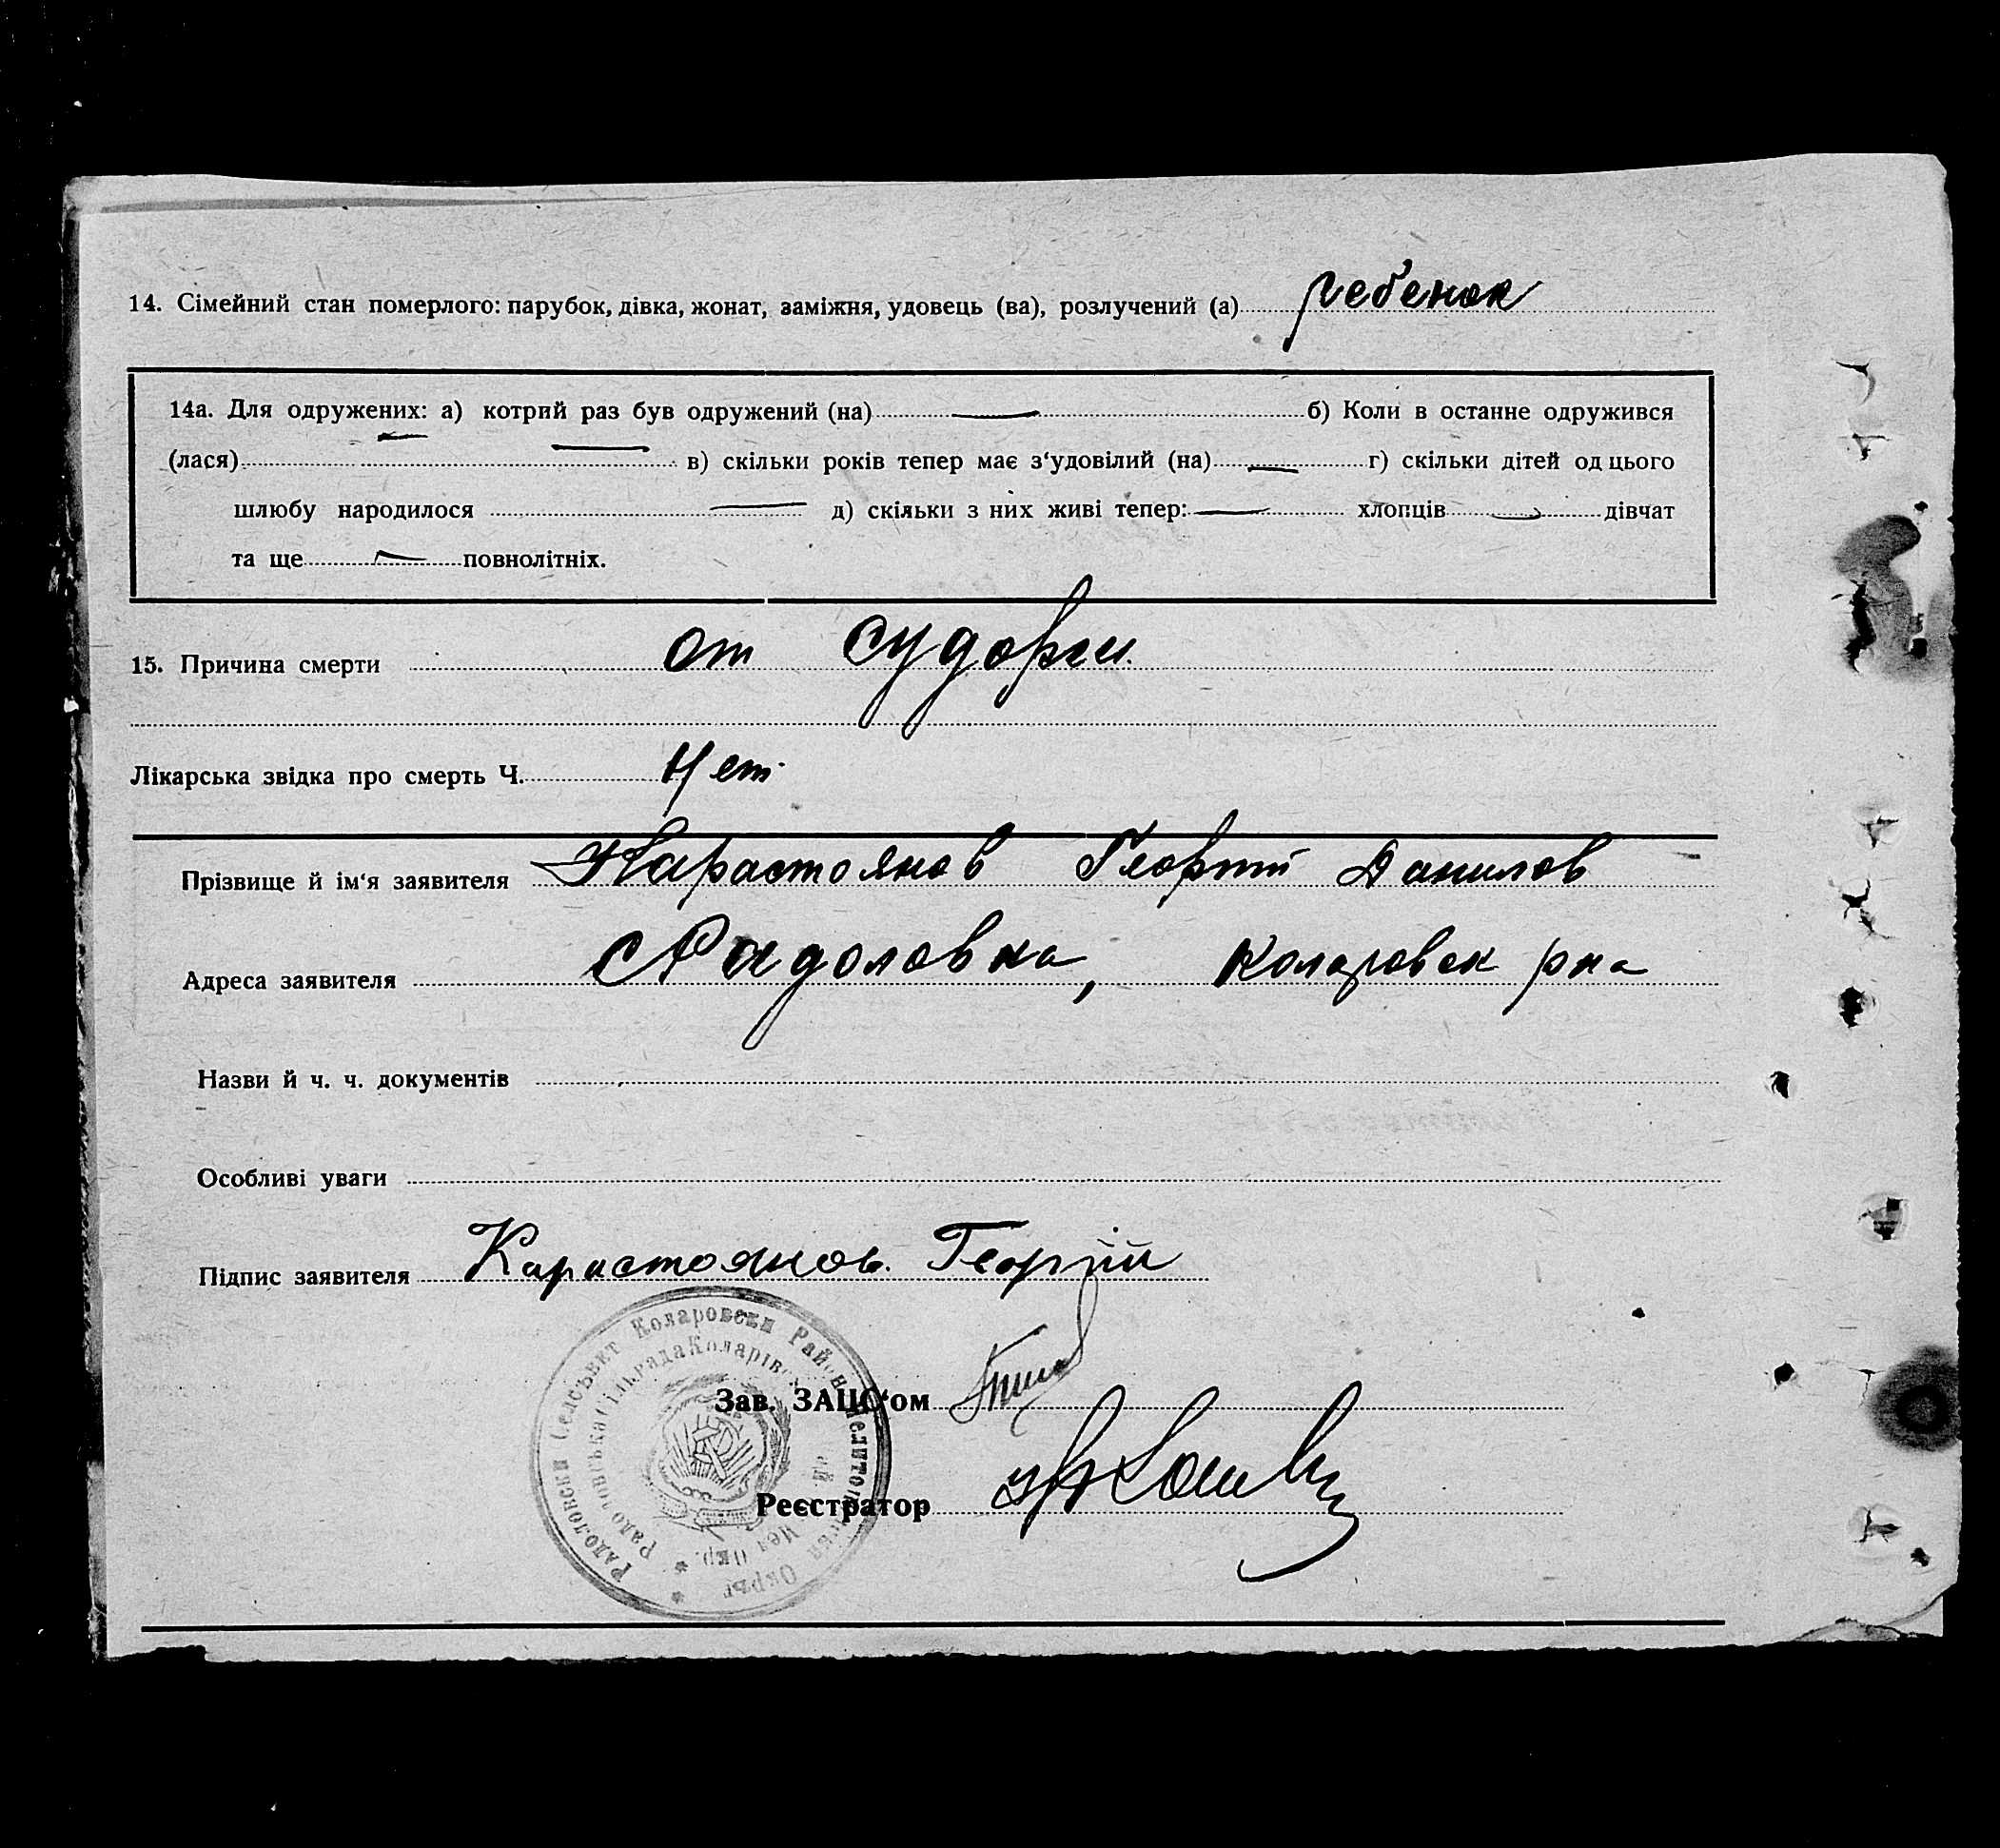 14. Сімейний стан померлого: парубок, дівка, жонат, заміжня, удовець (ва), розлучений (а) ребенок
14а. Для одружених: а) котрий раз був одружений (на) — б) Коли в останне одружився
(лася) — — в) скільки років тепер має з‘удовілий (на) — г) скільки дітей од цього
шлюбу народилося — д) скільки з них живі тепер: — хлопців — дівчат
та ще — повнолітніх.
15. Причина смерти от судорги
Лікарська звідка про смерть Ч. Нет
Прізвище й ім‘я заявителя Карастоянов Георгий Данилов
Адреса заявителя с Радоловка, Коларовск рна
Назви й ч. ч. документів
Особливі уваги
Підпис заявителя Карастоянов Георгій
Радоловски Селсъвет Коларовски Район Мелитополски Окръг
Радоловська Сільрада Коларівськ Мел Окр.
Зав. ЗАЦС‘ом
Реєстратор